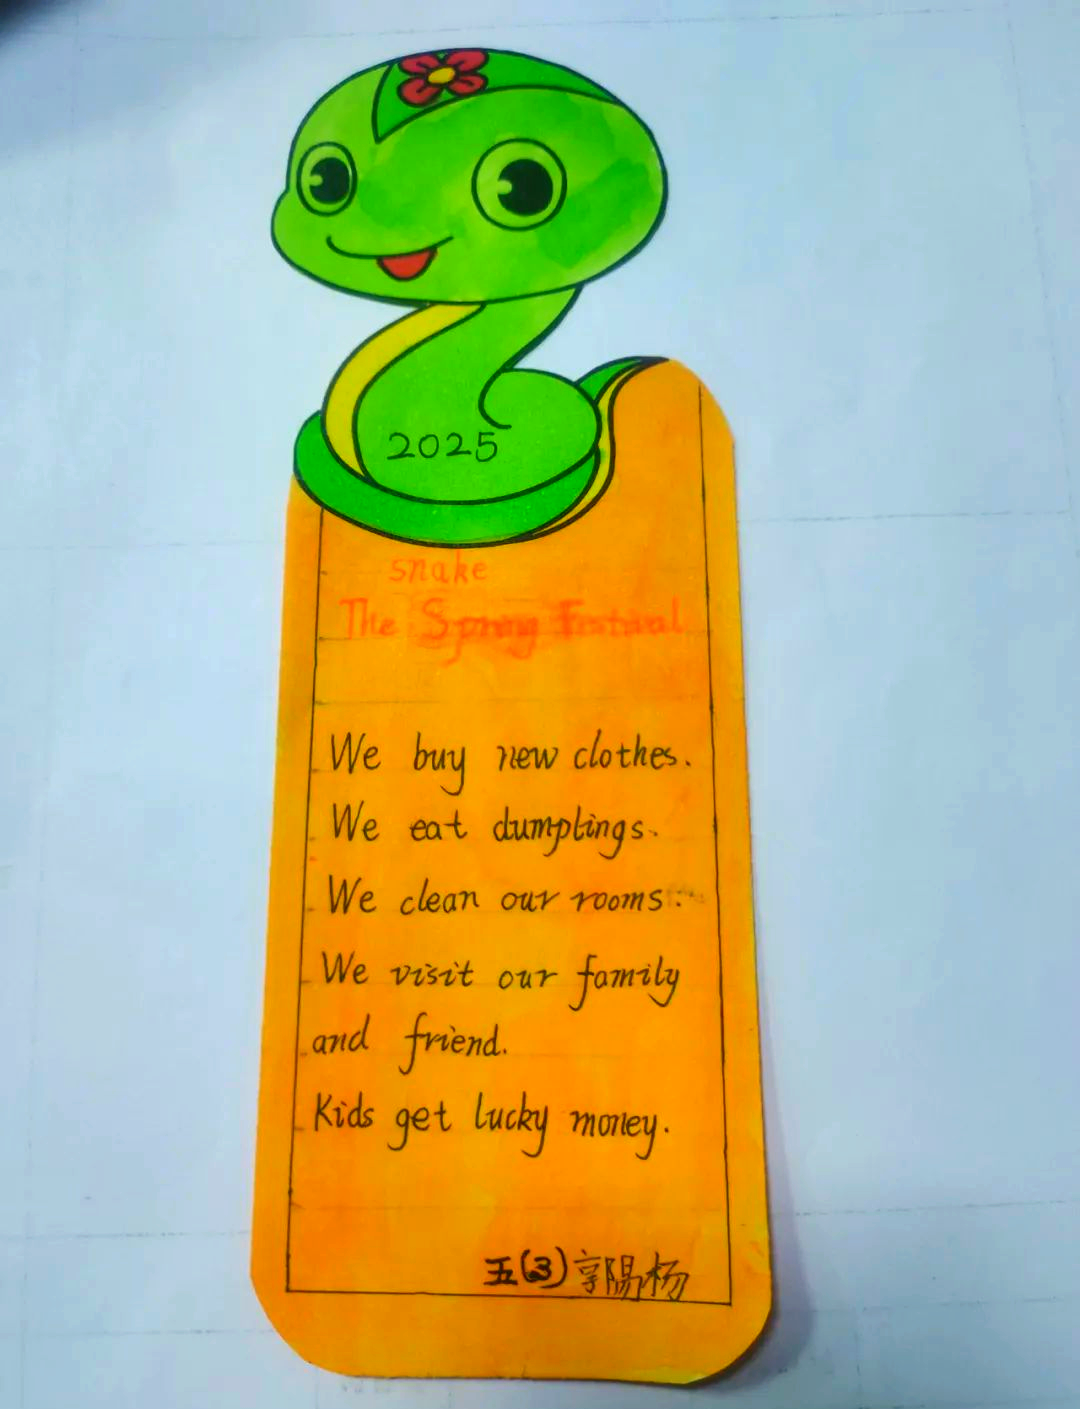 2025
snake
The Spring Festival
We buy new clothes.
We eat dumplings.
We clean our rooms.
We visit our family
and friend.
Kids get lucky money.
五(3) 郭陽杨